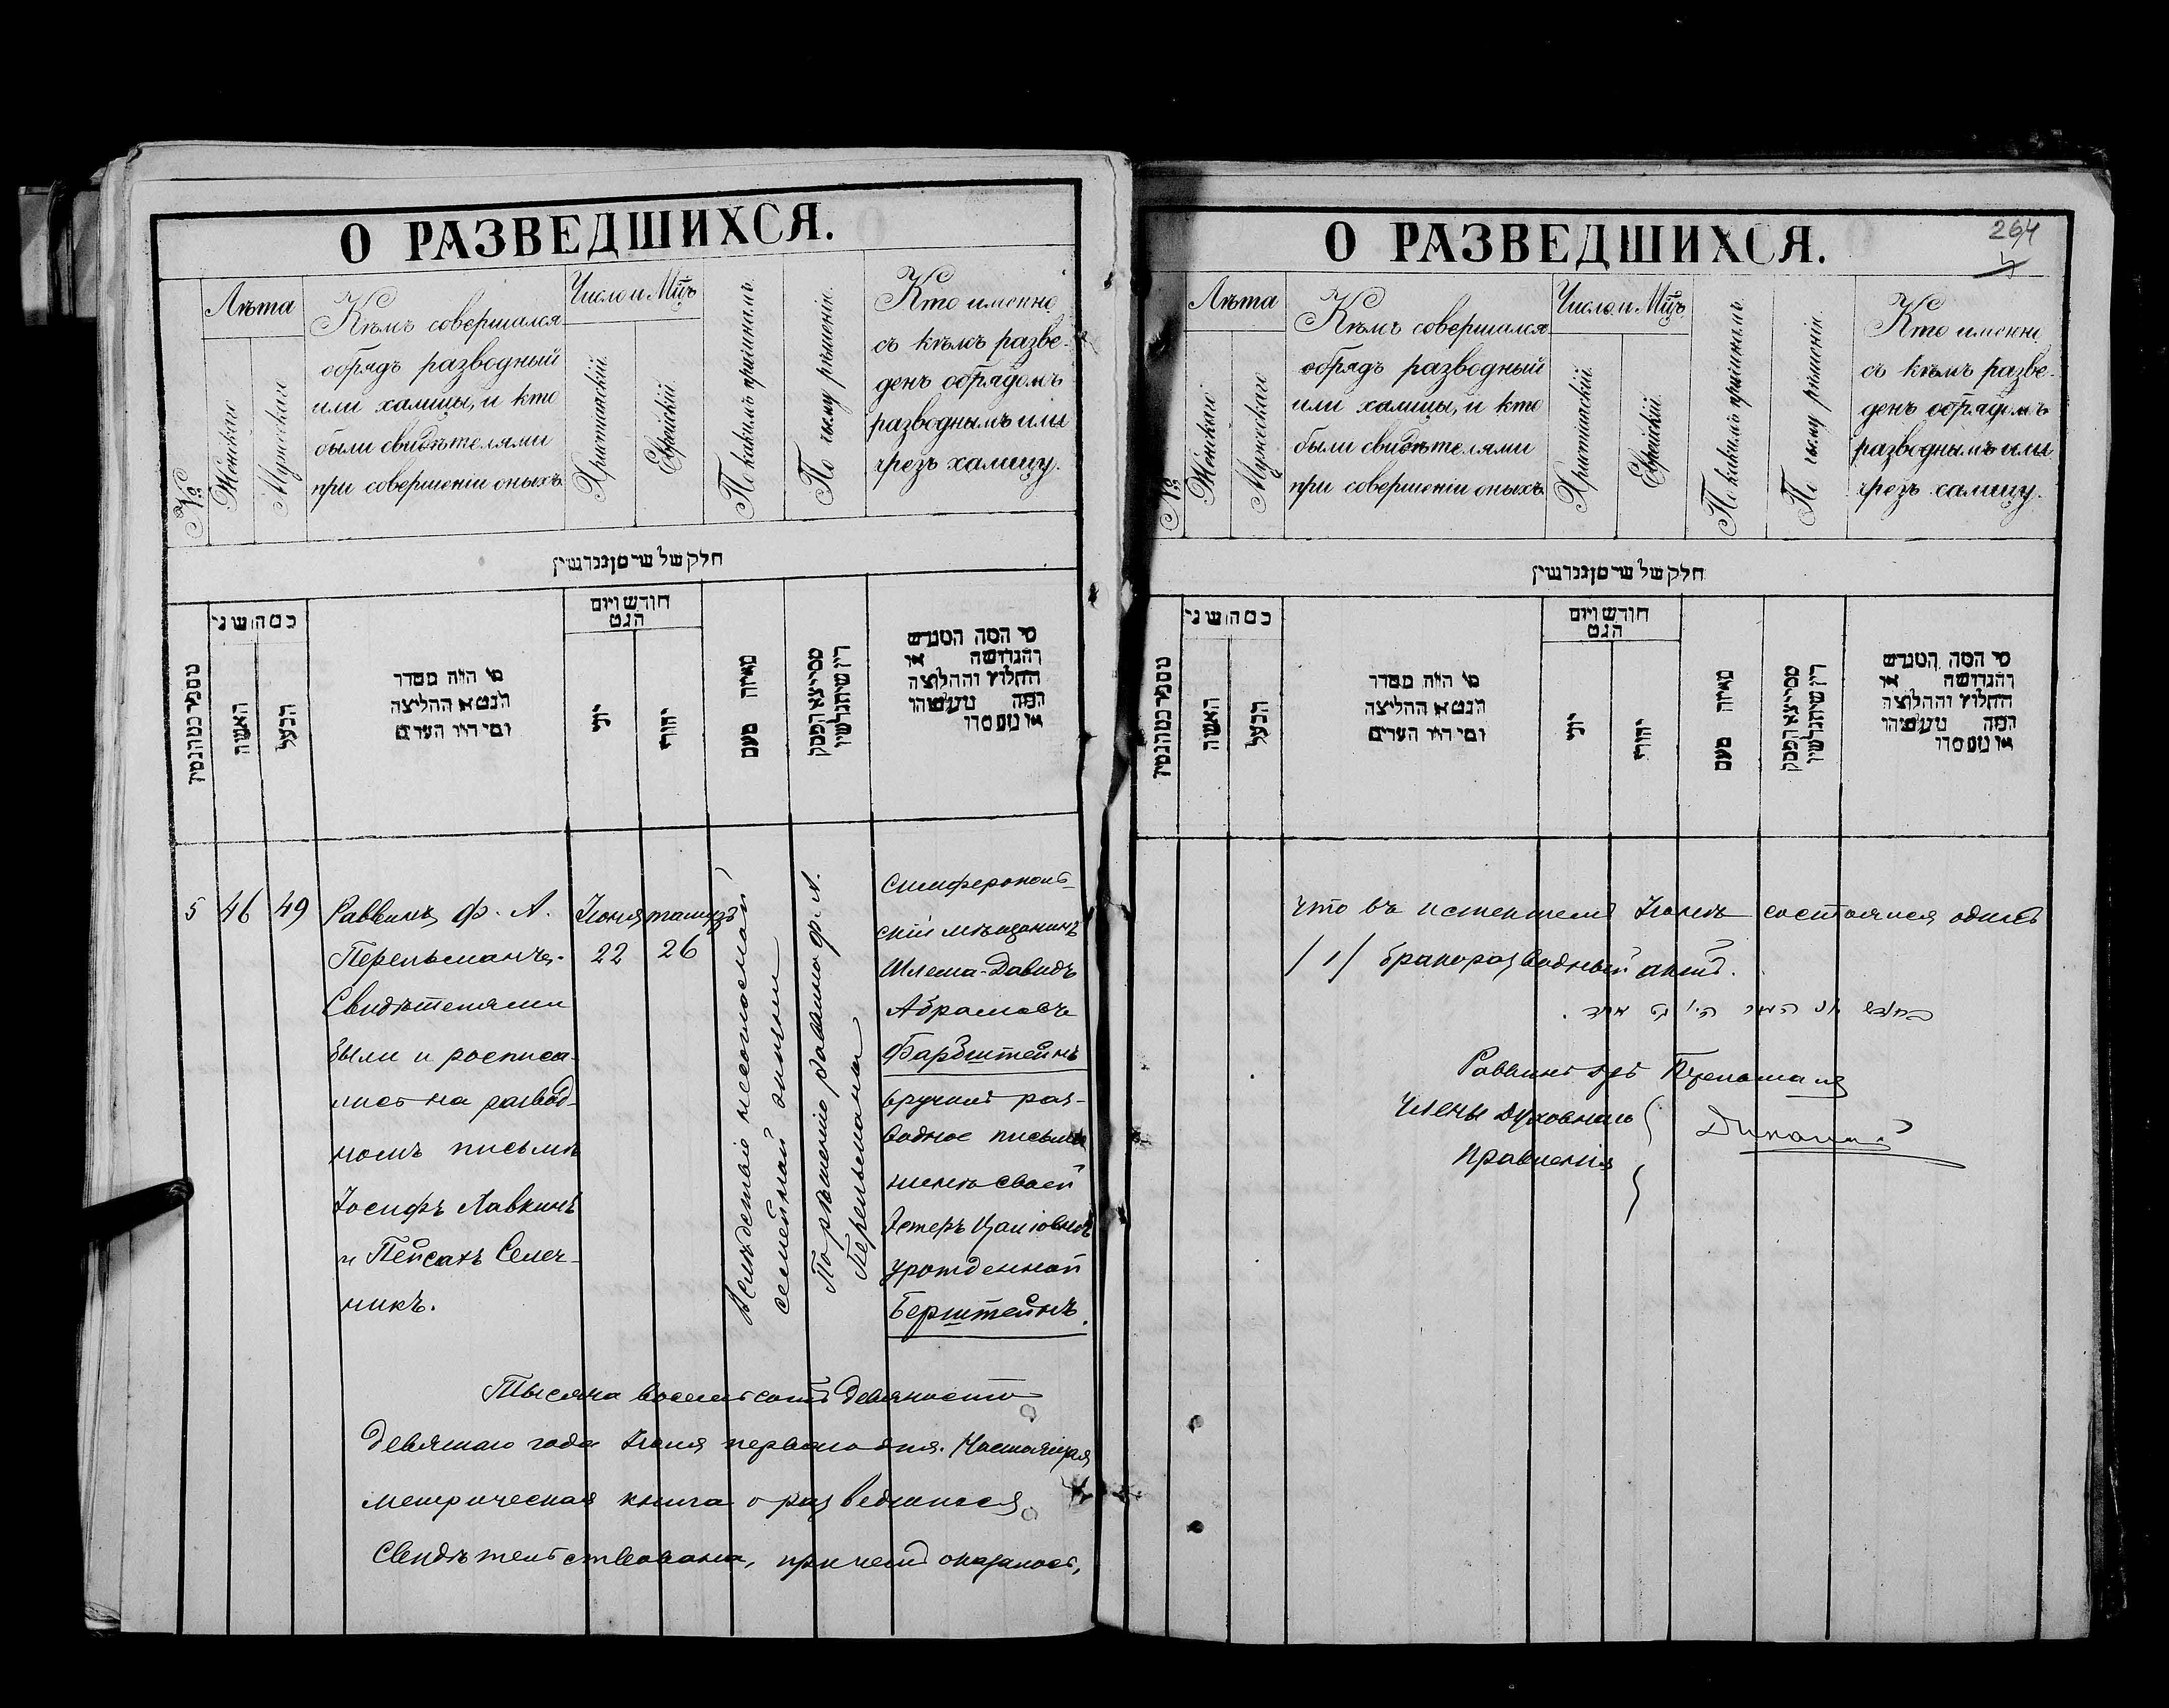 О РАЗВЕДШИХСЯ.
№
Лѣта
Женскаго
Мужескаго
Кѣмъ совершался
обрядъ разводный
или халицы, и кто
были свидѣтелями
при совершеніи оныхъ
Число и Мѣцъ
Христіаскій.
Еврейскій.
По какимъ причинамъ.
По чьему рѣшенію.
Кто именно
съ кѣмъ разве-
денъ обрядомъ
разводнымъ или
чрезъ халицу.
חלק של
כמה שני
האשה
הבעל
מי היה מסדר
הגט או החליצה
ומי היו העדים
חודש ויום
הגט
יוני
יהודי
מאיזה טעם
5
46
49
Раввинъ Ф. А.
Перельманъ.
Свидѣтелями
были и росписа-
лись на развод-
номъ письмѣ
Іосифъ Лавкинъ
и Пейсахъ Селеч-
никъ.
Іюня
22
тамузъ
26
Вслѣдствіе несогласной
семейной жизни
По рѣшенію раввина Ф. А.
Перельмана
Симферополь-
скій мѣщанинъ
Шлема-Давидъ
Абрамовъ
Фарбштейнъ
вручилъ раз-
водное письмо
женѣ своей
Эстеръ
урожденной
Берштейнъ.
Тысяча восемьсотъ девяносто
девятаго года Іюля перваго дня. Настоящая
метрическая книга о разведшихся
свидѣтельствована, при чемъ оказалось,
О РАЗВЕДШИХСЯ.
264
№
Лѣта
Женскаго
Мужескаго
Кѣмъ совершался
обрядъ разводный
или халицы, и кто
были свидѣтелями
при совершеніи оныхъ
Число и Мѣцъ
Христіаскій.
Еврейскій.
По какимъ причинамъ.
По чьему рѣшенію.
Кто именно
съ кѣмъ разве-
денъ обрядомъ
разводнымъ или
чрезъ халицу.
חלק של
כמה שני
האשה
הבעל
מי היה מסדר
הגט או החליצה
ומי היו העדים
חודש ויום
הגט
יוני
יהודי
מאיזה טעם
что въ истекшемъ Іюнѣ состоялся одинъ
/1/ бракоразводный актъ.
Раввинъ Перельманъ
Члены Духовнаго
Правленія